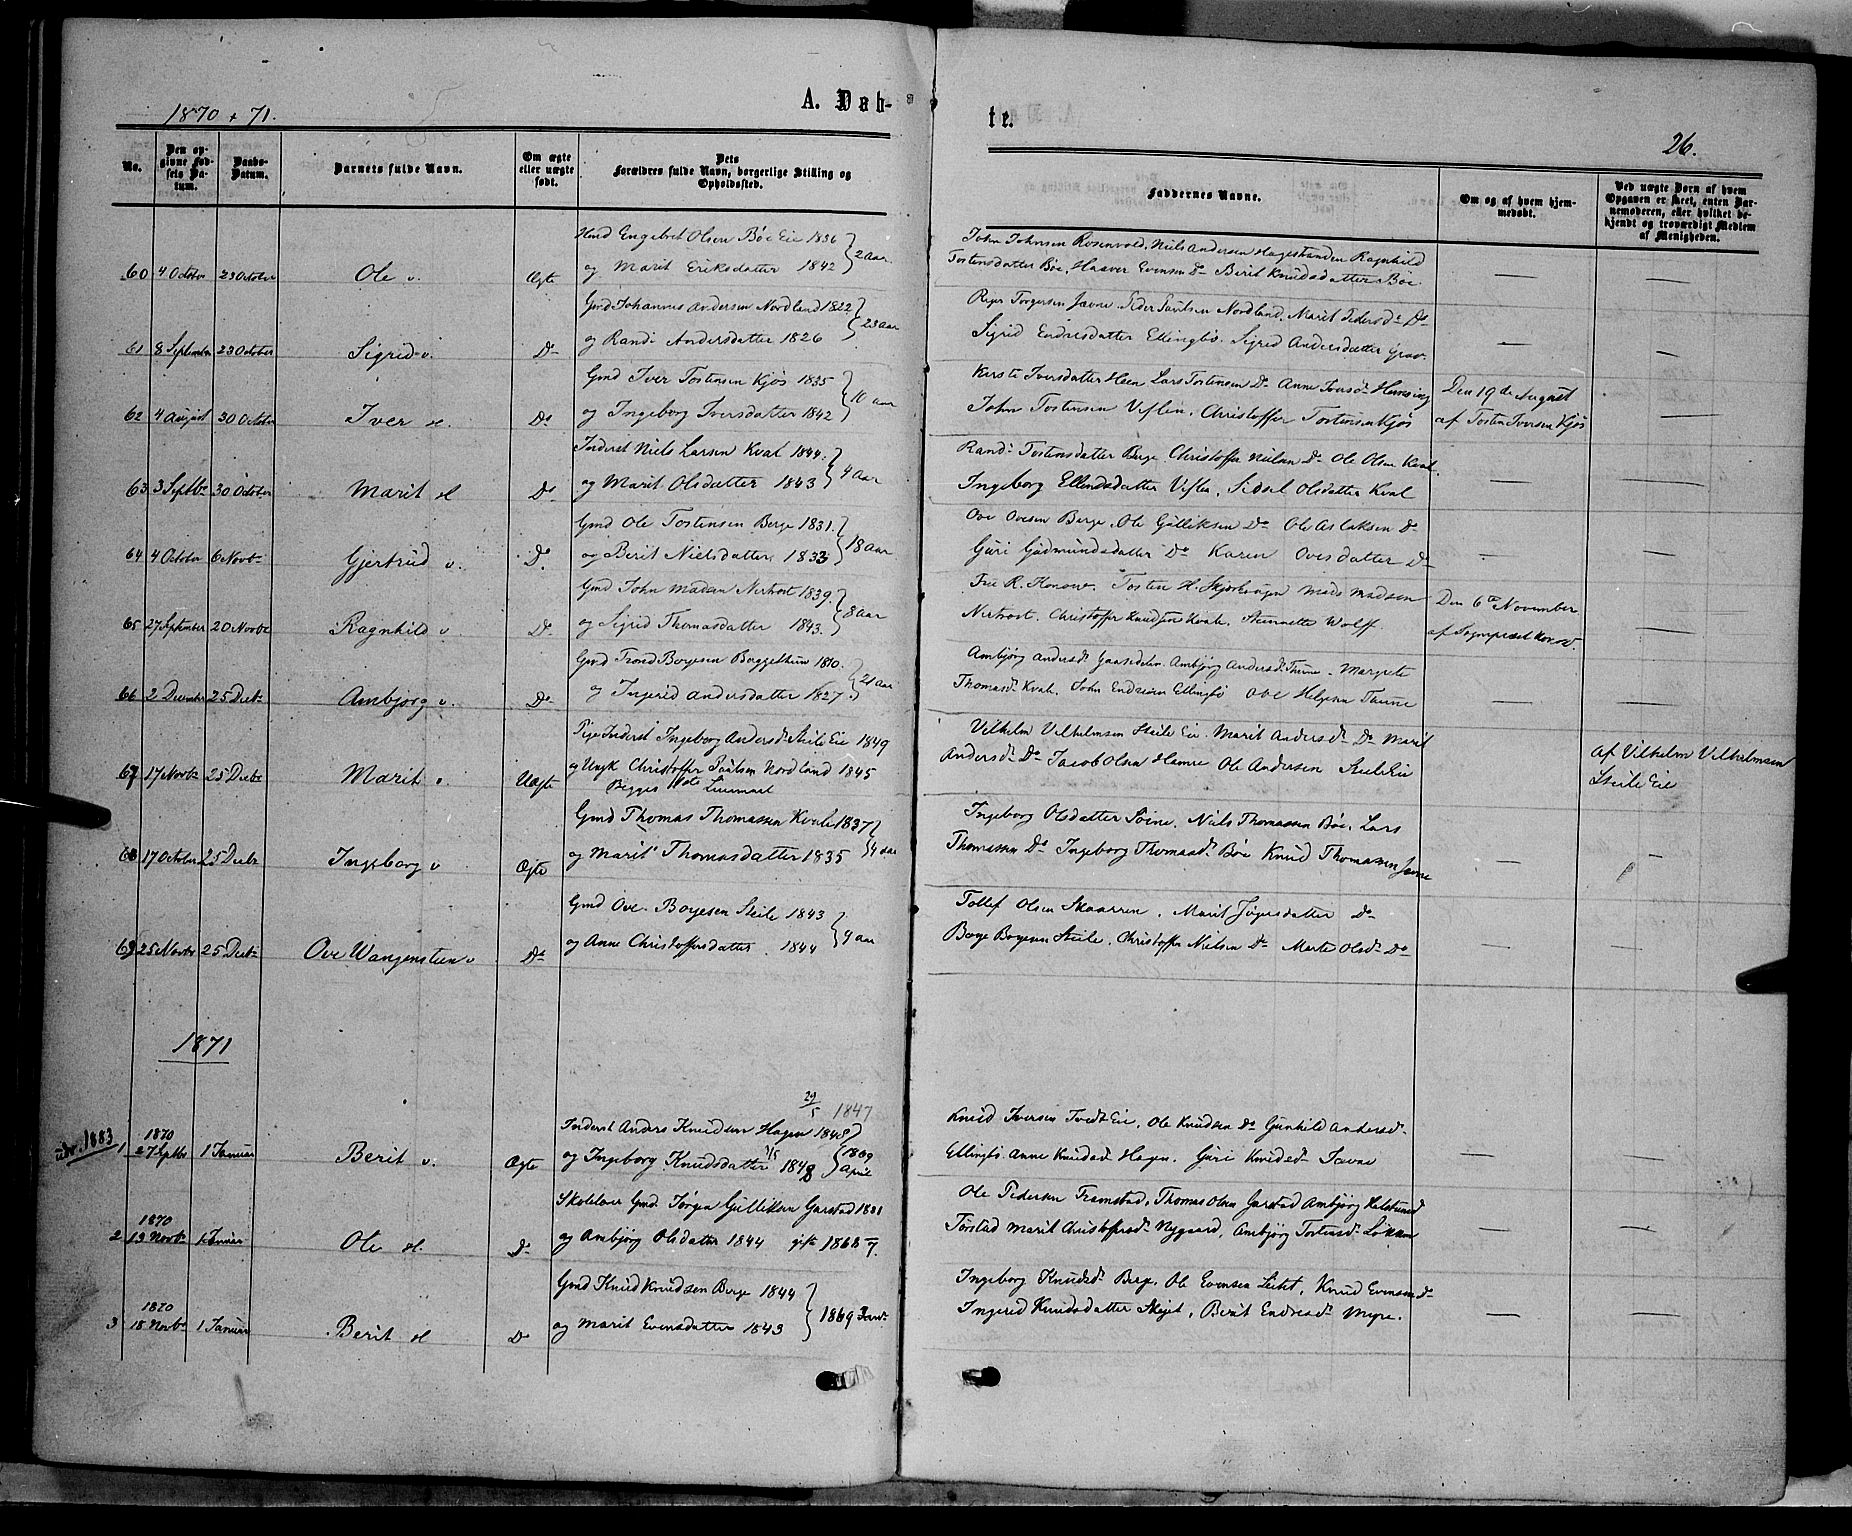 1870 + 71.
A. Døb-
te.
26.
No.
Den opgivne Fødsels Datum.
Daabs-Datum.
Barnets fulde Navn.
Om ægte eller uægte født.
Dets Forældres fulde Navn, borgerlige Stilling og Opholdssted.
Faddernes Navne.
Om og af hvem hjemmedøbt.
Ved uægte Børn af hvem Opgaven er skeet, enten Barnemoderen, eller hvilket bekjendt og troværdigt Medlem af Menigheden.
60 4 October 23 October Ole v. Ægte
Engebret Olsen Bøe Eie 1836
og Marit Eriksdatter 1842 2 aar
John Johnsen Rosenvold, Niels Andersen Hagestranden Ragnhild
Tostensdatter Bøe, Haaver Evensen Do Berit Knudsdatter Bøe
61 8 September 23 October Sigrid v. Do
Gmd Johannes Andersen Nordland 1822
og Randi Andersdatter 1826 23 aar
Torgersen Jævne. Peder Paulsen Nordland. Marit Pedersd. Do
Sigrid Endresdatter Ellingbø. Sigrid Andersdatter
62 4 August 30 October Iver Do
Gmd Iver Tostensen Kjøs 1835
og Ingeborg Iversdatter 1842 10 aar
Iversdatter Heen Lars Tostensen Do Anne
John Tostensen Veflen. Christoffer Tostensen Kjøs
Den 19de August
af Tosten Iversen Kjøs
63 3 Septbr 30 October Marit Do
Inderst Niels Larsen Kval 1844.
og Marit Olsdatter 1843 4 aar
Randi Tostensdatter Berge. Christoffer Nielsen Do Ole Olsen Kval
Ingeborg Ellendsdatter Veflen. Sidsel Olsdatter Kval
64 4 October 6 Novbr Gjertrud v. Do
Gmd Ole Tostensen Berge 1831.
og Berit Nielsdatter 1833 18 aar
Ove Ovesen Berge. Ole Gulliksen Do Ole Aslaksen Do
Guri Gudmundsdatter Do Karen Ovesdatter Do
65 27 September 20 Novbr Ragnhild v. Do
Gmd John Nertrost 1839.
og Sigrid Thomasdatter 1843. 8 aar
R. Konow. Tosten H. Mads Madsen
Nertrost. Christoffer Knudsen Kvale. Wolff.
Den 6te November
af Sognepræst Konow.
66 2 December 25 Decbr Ambjørg v. Do
Gmd Trond Boyesen Baggethun 1810.
og Ingerid Andersdatter 1827 21 aar
Ambjørg Andersd. Ambjørg Andersd. Thune. Margrete
Thomasd. Kvale. John Endresen Ellingbø Ove Helgesen Thune
67 17 Novbr 25 Decbr Marit v. Uægte
Pige Inderst Ingeborg Andersd. Steile Eie 1849
og Ungk Christoffer Paulsen Nordland 1845
Begges 1ste Leiermaal
Vilhelm Vilhelmsen Steile Eie. Marit Andersd. Do Marit
Andersd. Do Jacob Olsen Hamre Ole Andersen Steile Eie
af Vilhelm Vilhelmsen
Steile Eie
68 17 October 25 Decbr Ingeborg v Ægte
Gmd Thomas Thomassen Kvale 1837
og Marit Thomasdatter 1835 4 aar
Ingeborg Olsdatter Niels Thomassen Bøe. Lars
Thomassen Do Ingeborg Thomasd. Bøe Knud Thomassen Jævne
69 25 Novbr 25 Decbr Ove Wangensteen v Do
Gmd Ove Boyesen Steile 1843
og Anne Christoffersdatter 1844 4 aar
Tollef Olsen Skaarren. Marit Do
Boye Boyesen Steile. Christoffer Nielsen Do Marte Olsd. Do
1871
29/5 1847
udv. 1883
1 1870 27 Septbr 1 Januar Berit v. Ægte
Inderst Anders Knudsen Hagen 1848
og Ingeborg Knudsdatter 1848 1869 April
Knud Iversen Tvedt Eie, Ole Knudsen Do Gunhild Andersd.
Ellingbø. Anne Knudsd. Hagen. Guri Knudsd. Jævne
2 1870 13 Novbr 1 Januar Ole Do
Skolelærer Gmd. Jørgen Gulliksen Garstad 1831
og Ambjørg Olsdatter 1844 gift 1868
Ole Pedersen Framstad. Thomas Olsen Garstad Ambjørg
Marit Christoffersd. Nygaard, Ambjørg Tostensd. Lokken
3 1870 18 Novbr 1 Januar Berit Do
Gmd Knud Knudsen Berge 1844
og Marit Evensdatter 1843 1869
Ingeborg Knudsd. Berge. Ole Evensen Knud Evensen Do
Ingerid Knudsdatter Berit Endresd. Myre.